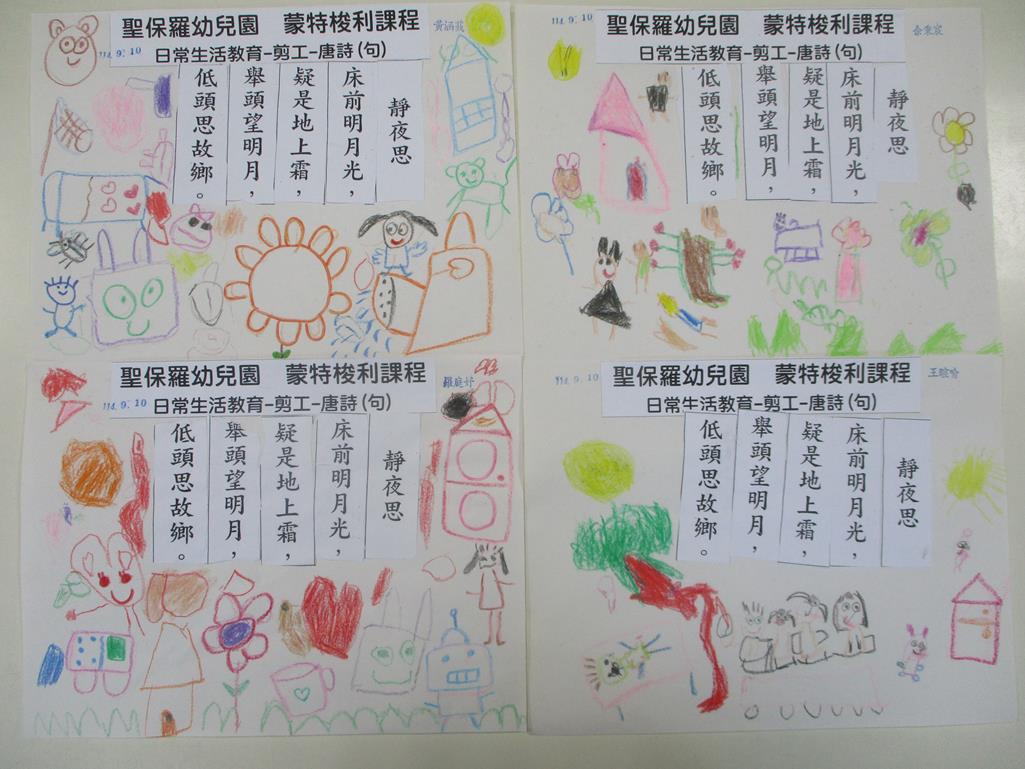 聖保羅幼兒園 蒙特梭利課程
114. 9. 10
日常生活教育-剪工-唐詩(句)
靜夜思
床前明月光，
疑是地上霜，
舉頭望明月，
低頭思故鄉。
聖保羅幼兒園 蒙特梭利課程
余秉宸
114. 9. 10
日常生活教育-剪工-唐詩(句)
靜夜思
床前明月光，
疑是地上霜，
舉頭望明月，
低頭思故鄉。
聖保羅幼兒園 蒙特梭利課程
羅庭妤
114. 9. 10
日常生活教育-剪工-唐詩(句)
靜夜思
床前明月光，
疑是地上霜，
舉頭望明月，
低頭思故鄉。
聖保羅幼兒園 蒙特梭利課程
114. 9. 10
日常生活教育-剪工-唐詩(句)
靜夜思
床前明月光，
疑是地上霜，
舉頭望明月，
低頭思故鄉。